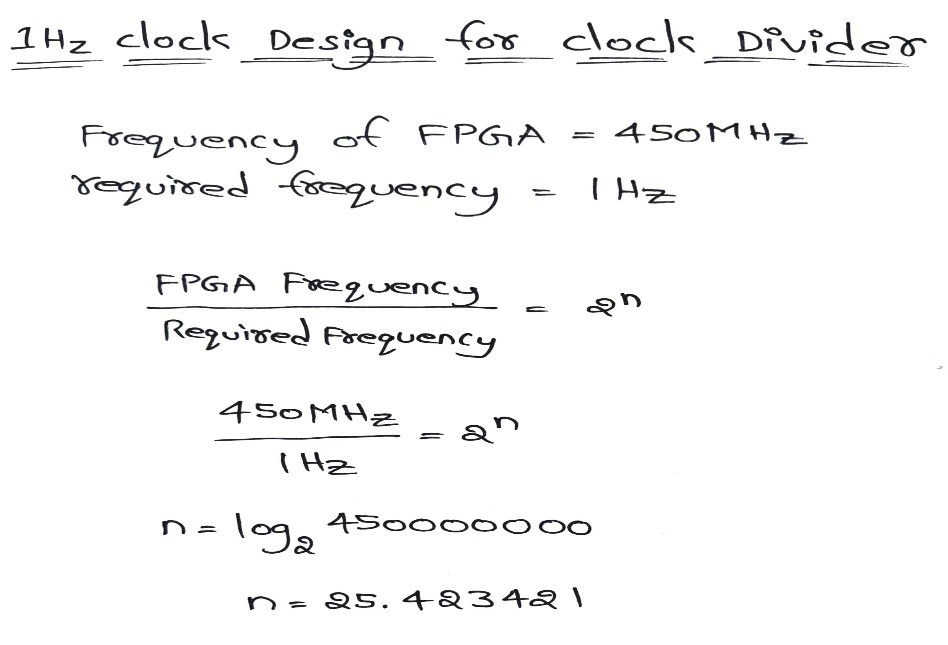 1Hz clock Design for clock Divider
Frequency of FPGA = 450MHz
required frequency = 1Hz
FPGA Frequency
Required Frequency
= 2ⁿ
450MHz
1Hz
= 2ⁿ
n = log₂ 450000000
n = 25.423421